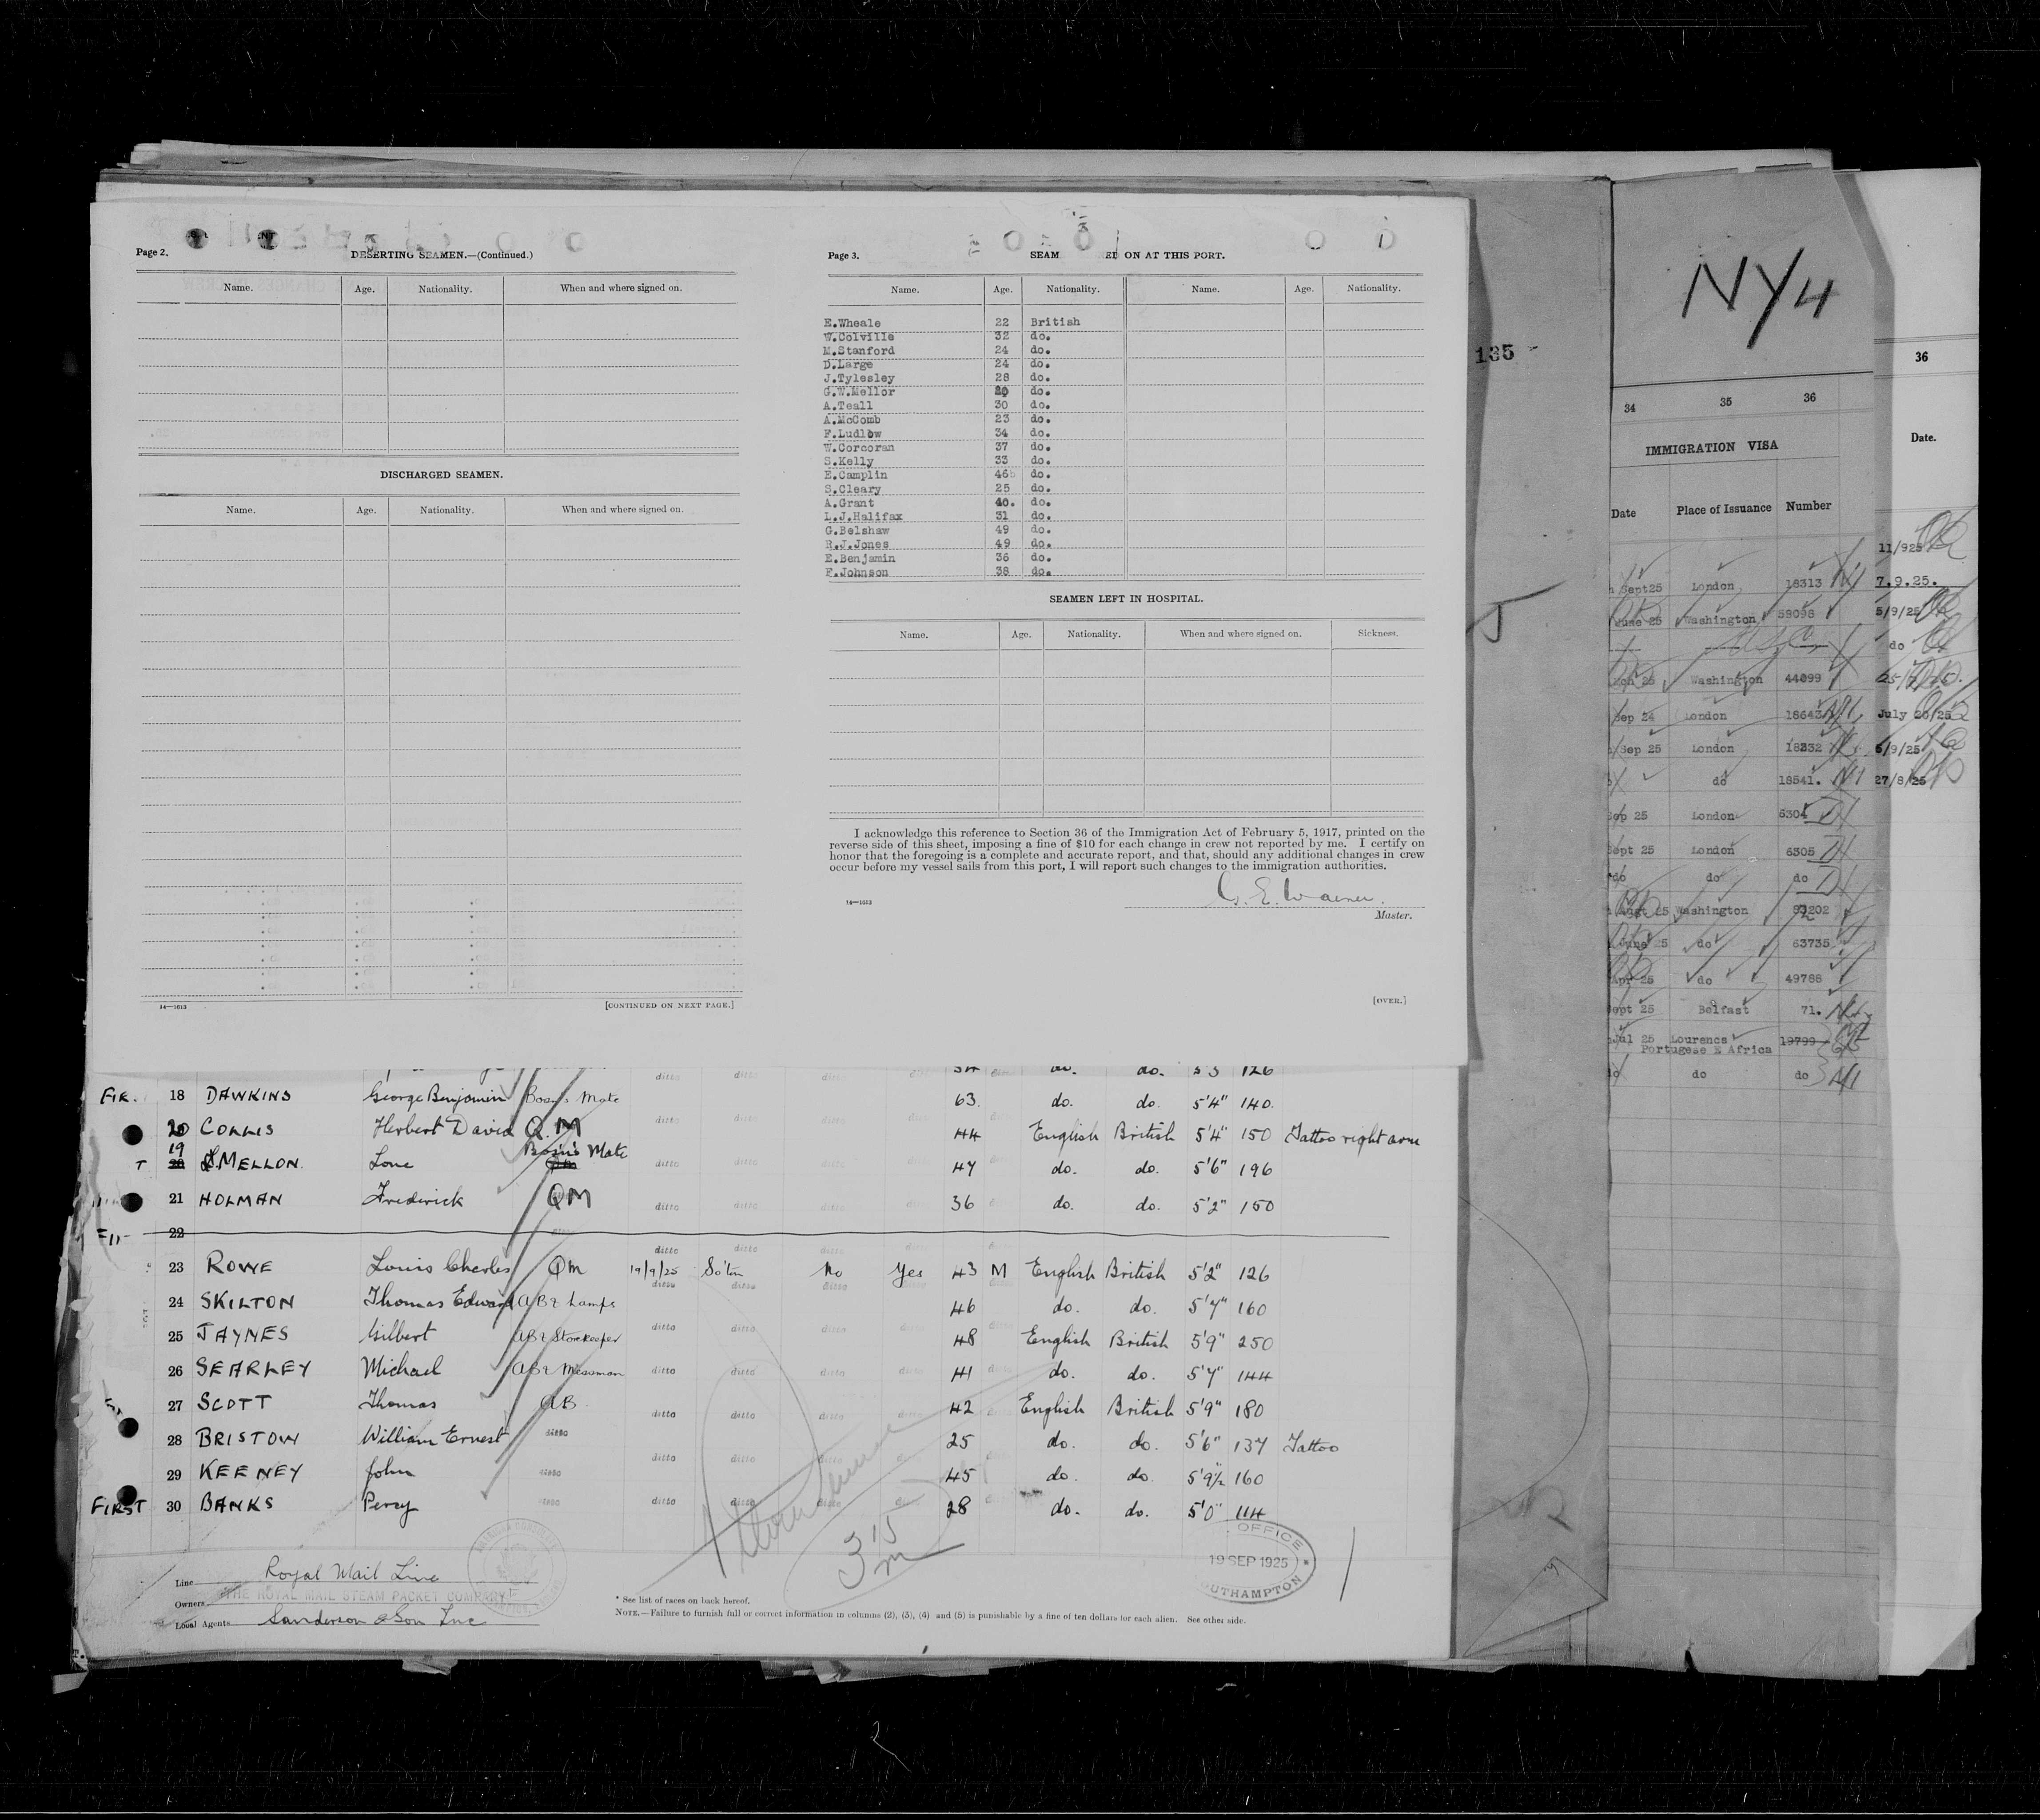 Page 2.
DESERTING SEAMEN.—(Continued.)
Name. Age. Nationality. When and where signed on.
DISCHARGED SEAMEN.
Name. Age. Nationality. When and where signed on.
14—1613
[CONTINUED ON NEXT PAGE.]
Page 3.
SEAM ON AT THIS PORT.
Name. Age. Nationality. Name. Age. Nationality.
E.Wheale 22 British
W.Colville 32 do.
M.Stanford 24 do.
D.Large 24 do.
J.Tylesley 28 do.
G.W.Mellor do.
A.Teall 30 do.
A.McComb 23 do.
F.Ludlow 34 do.
W.Corcoran 37 do.
S.Kelly 33 do.
E.Camplin 46 do.
S.Cleary 25 do.
A.Grant 40. do.
L.J.Halifax 31 do.
G.Belshaw 49 do.
R.J.Jones 49 do.
E.Benjamin 36 do.
F.Johnson 38 do.
SEAMEN LEFT IN HOSPITAL.
Name. Age. Nationality. When and where signed on. Sickness.
I acknowledge this reference to Section 36 of the Immigration Act of February 5, 1917, printed on the
reverse side of this sheet, imposing a fine of $10 for each change in crew not reported by me. I certify on
honor that the foregoing is a complete and accurate report, and that, should any additional changes in crew
occur before my vessel sails from this port, I will report such changes to the immigration authorities.
14—1613
Master.
[OVER.]
ditto ditto ditto do. do. 126
18 DAWKINS George Benjamin Bosn's Mate 63 do. do. 5'4" 140
20 COLLIS Herbert David Q.M ditto ditto ditto 44 English British 5'4" 150 Tattoo right arm
19 MELLON Love Bosn's Mate ditto ditto ditto 47 do. do. 5'6" 196
21 HOLMAN Frederick QM ditto ditto ditto 36 do. do. 5'2" 150
22
ditto ditto ditto
23 ROWE Louis Charles QM 19/9/25 So'ton No Yes 43 M English British 5'2" 126
ditto ditto ditto
24 SKILTON Thomas Edward AB & Lamps 46 do. do. 5'7" 160
25 JAYNES Gilbert AB & Storekeeper ditto ditto ditto 48 English British 5'9" 250
26 SEARLEY Michael AB & Messman ditto ditto ditto 41 do. do. 5'7" 144
27 SCOTT Thomas AB ditto ditto ditto 42 English British 5'9" 180
28 BRISTOW William Ernest ditto 25 do. do. 5'6" 137 Tattoo
29 KEENEY John ditto ditto ditto ditto 45 do. do. 5'9½" 160
FIRST 30 BANKS Percy ditto ditto ditto ditto 28 do. do. 5'0" 114
Line Royal Mail Line
Owners THE ROYAL MAIL STEAM PACKET COMPANY
Local Agents Sanderson & Son Inc
315
* See list of races on back hereof.
NOTE.—Failure to furnish full or correct information in columns (2), (3), (4) and (5) is punishable by a fine of ten dollars for each alien. See other side.
OFFICE
19 SEP 1925
OUTHAMPTON
135
NY4
34 35 36
IMMIGRATION VISA
Date Place of Issuance Number
Sept25 London 18313
June 25 Washington 58098
25 Washington 44099
Sep 24 London 18643
Sep 25 London 18332
do 18541.
Sep 25 London 6304
Sept 25 London 6305
do do do
Augt 25 Washington
June 25 do 63735
Apr 25 do 49786
Sept 25 Belfast 71.
Jul 25 Lourencs 19799
Portugese E Africa
do do do
36
Date.
11/925
7.9.25.
5/9/25
do
July 20/25
5/9/25
27/8/25